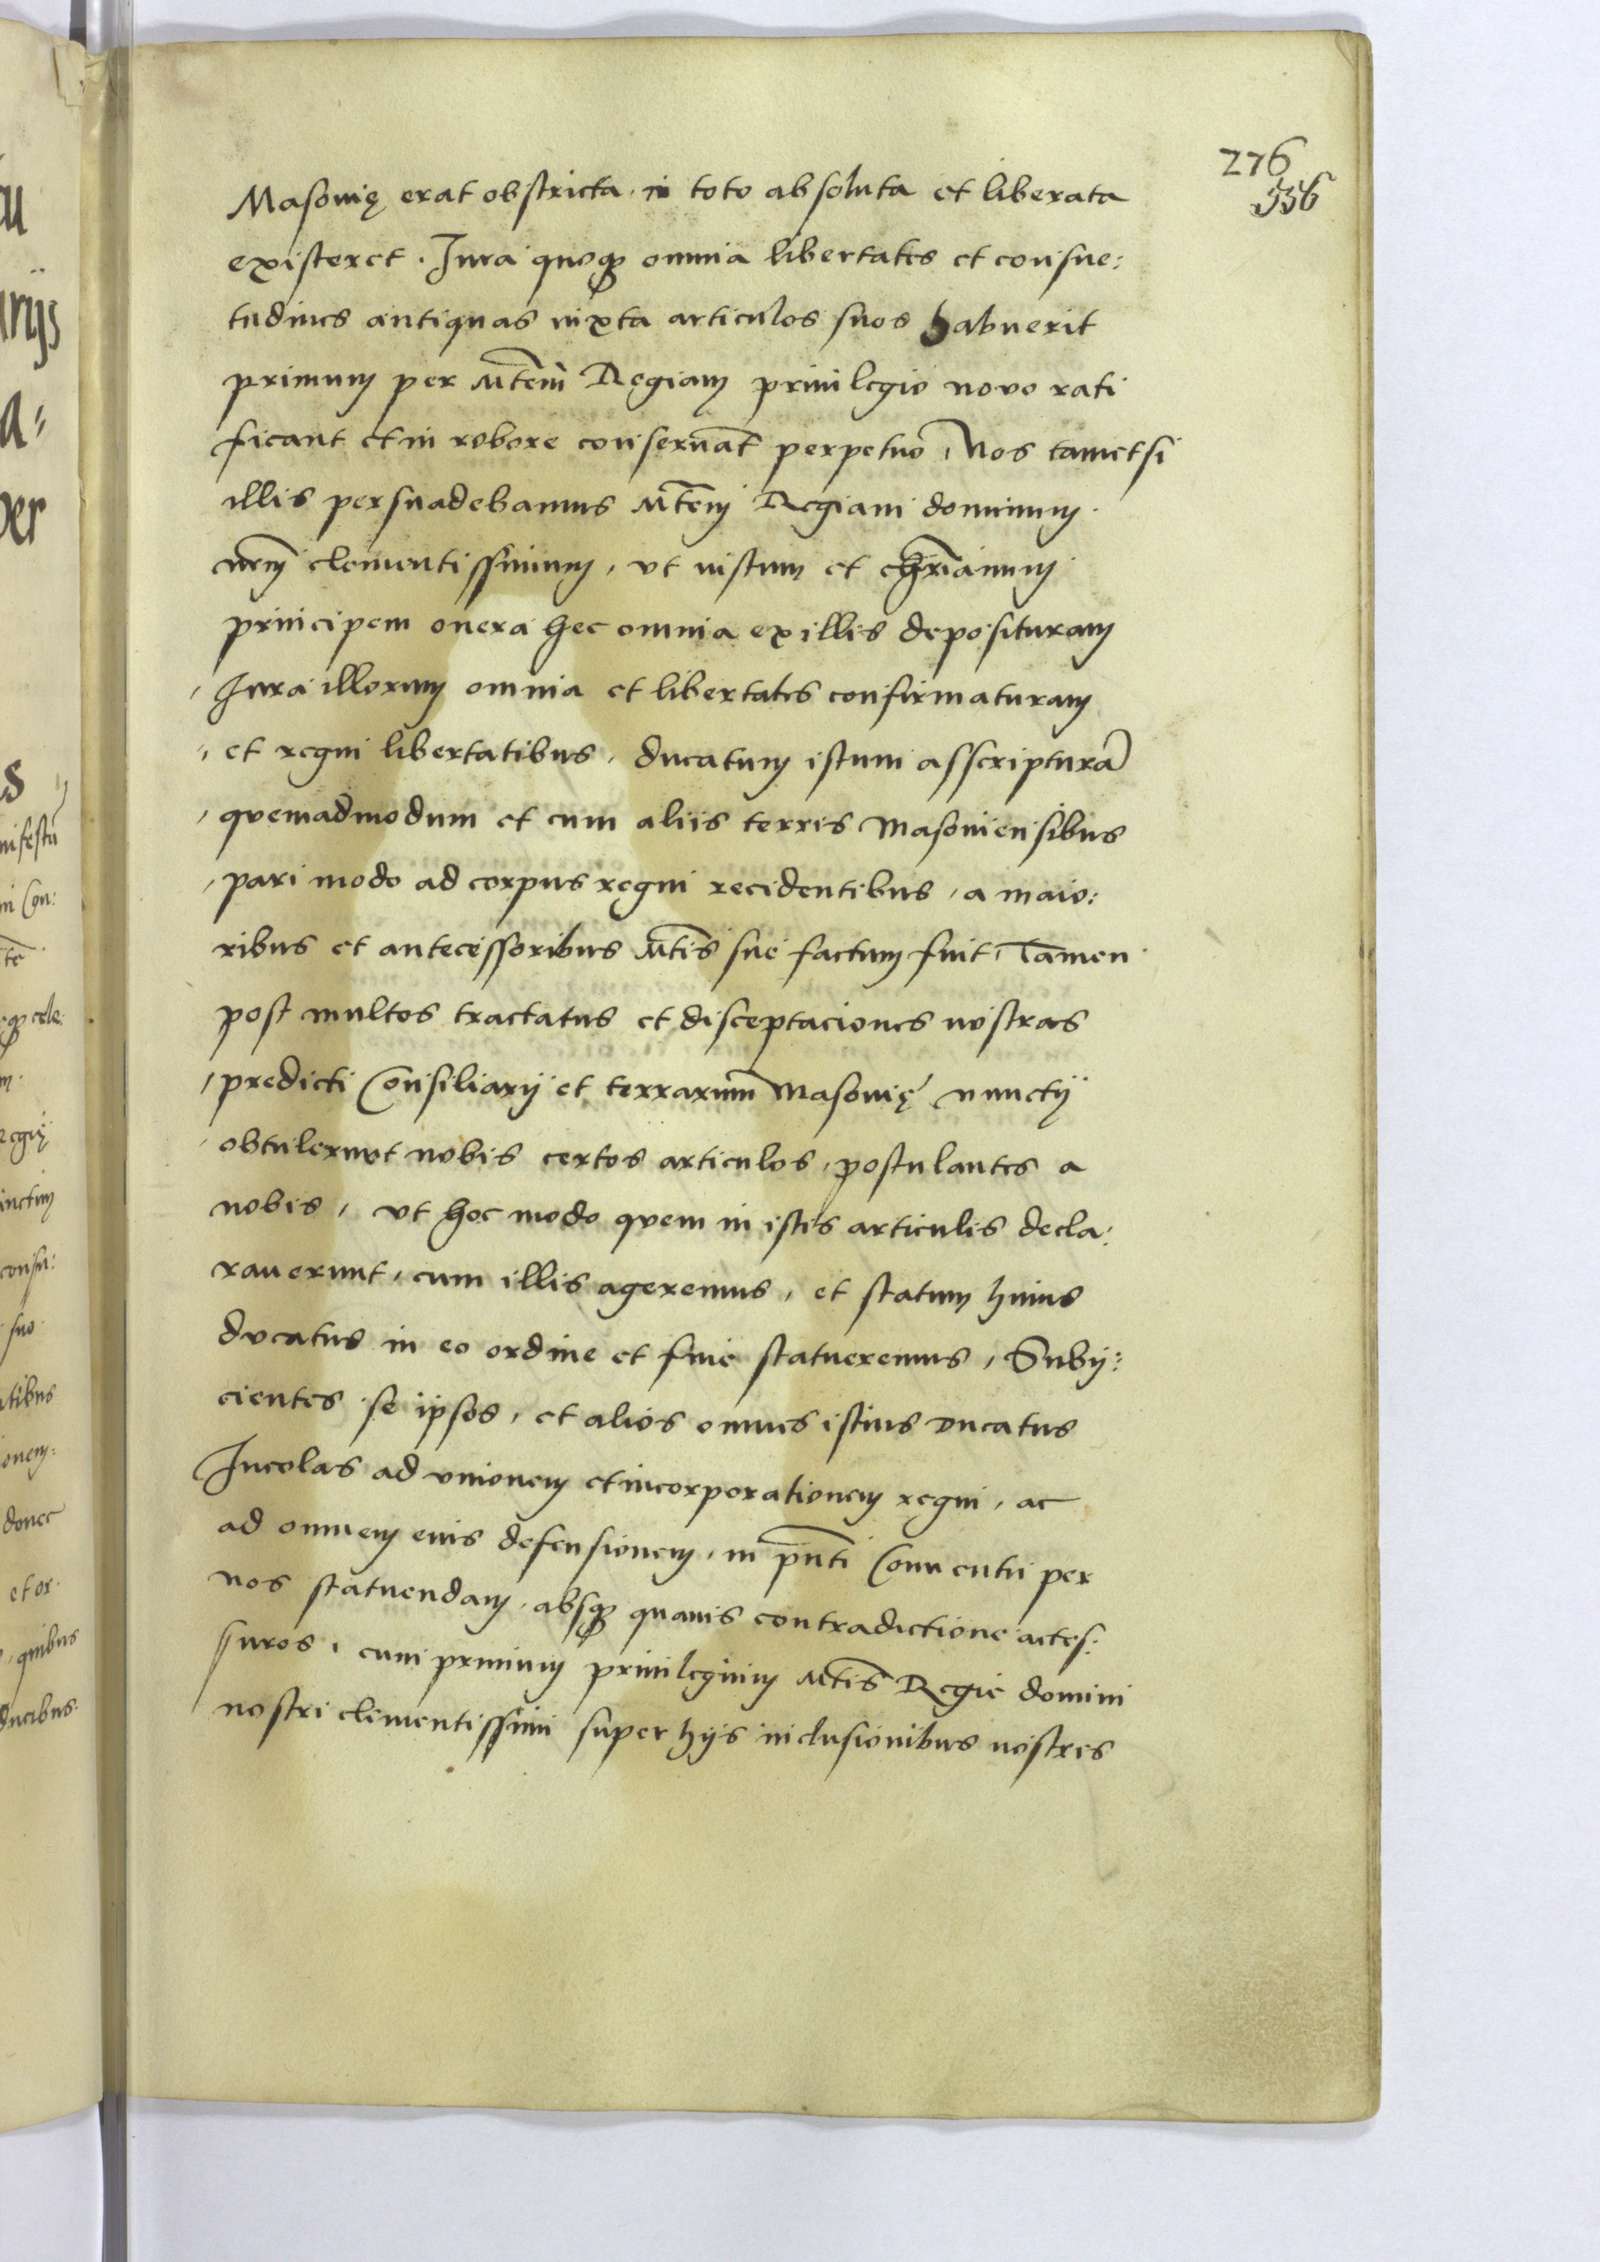 276
336
Masovię erat obstricta in toto absoluta et liberata
existeret. Jura quoqȝ omnia libertates et consue:
tudines antiquas iuxta articulos suos habuerit
primum per Mtem Regiam privilegio novo rati
ficant et in robore conservat perpetuo, Nos tametsi
illis persuadebamus Mtem Regiam dominum
nrm clementissimum, ut iustum et chrianum
principem onera hec omnia ex illis deposituram
Jura illorum omnia et libertates confirmaturam
et regni libertatibus, ducatum istum asscripturā
quemadmodum et cum aliis terris Masoviensibus
pari modo ad corpus regni recidentibus, a maio:
ribus et antecessoribus Mtis sue factum fuit, Tamen
post multos tractatus et disceptaciones nostras
predicti Consiliarij et terrarum Masovię nunctij
obtulerunt nobis certos articulos, postulantes a
nobis, ut hoc modo quem in istis articulis decla:
raverunt, cum illis ageremus, et statum huius
ducatus in eo ordine et fine statueremus, Subij:
cientes se ipsos, et alios omnes istius ducatus
Incolas ad unionem et incorporationem regni, ac
ad omnem eius defensionem, in pnti Conventu per
nos statuendam, absqȝ quavis contradictione acces:
suros, cum primum privilegium Mtis Regie domini
nostri clementissimi super hijs inclusionibus nostris